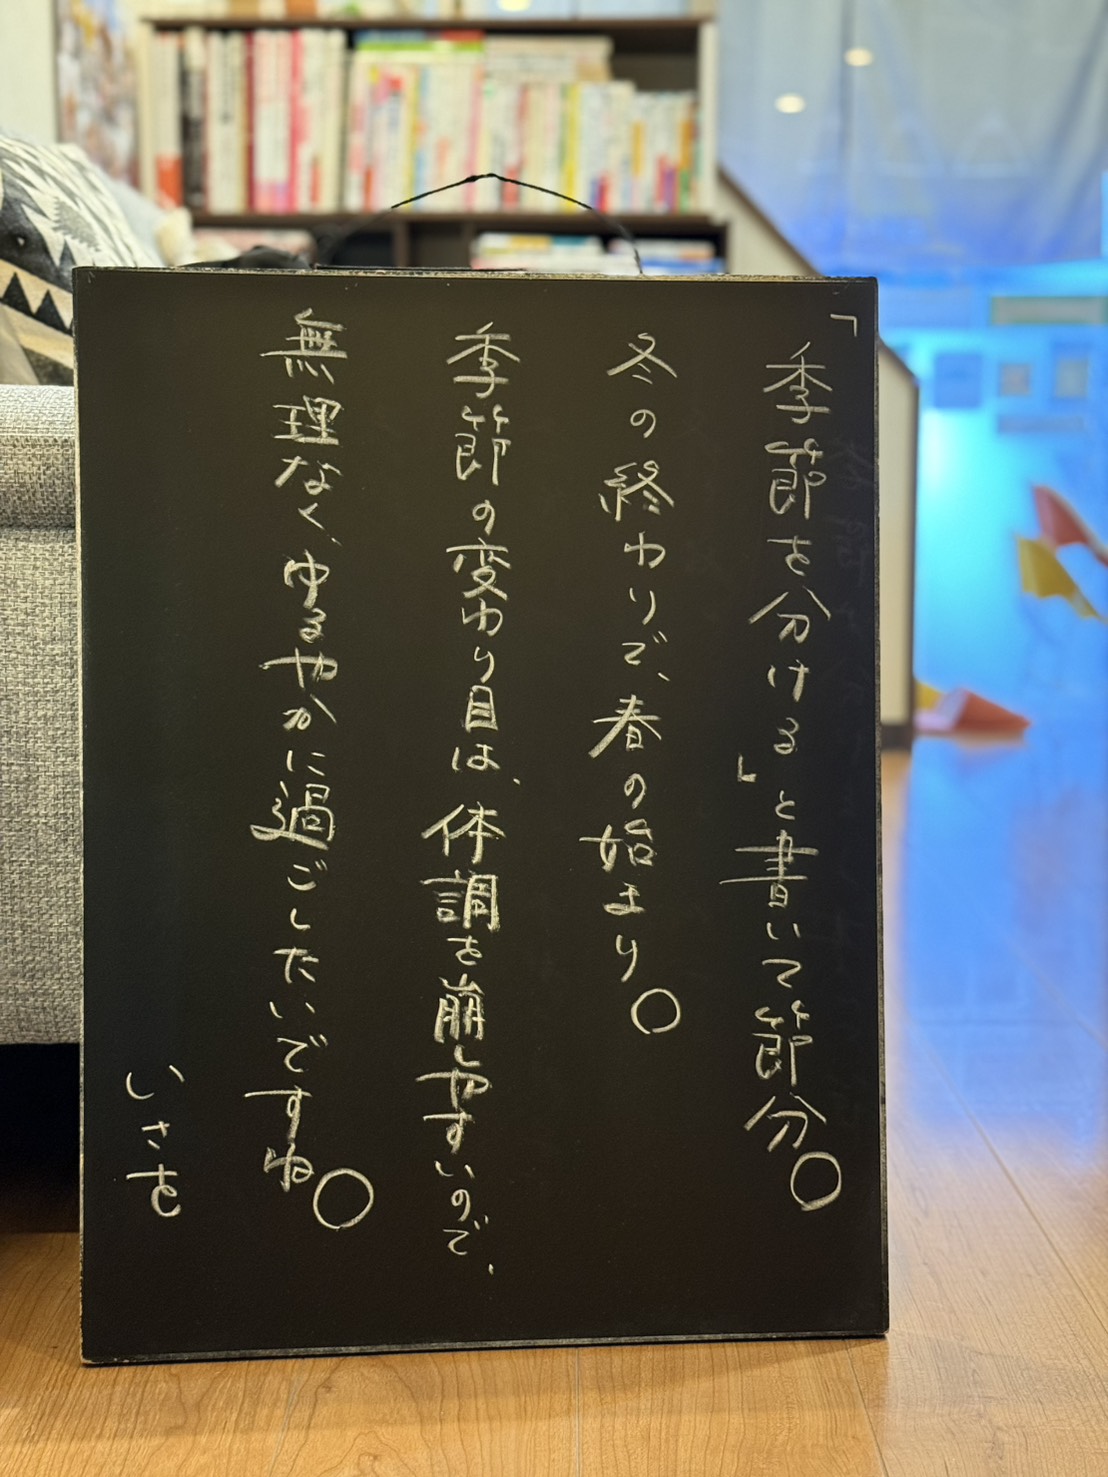 「季節を分ける」と書いて節分。
冬の終わりで、春の始まり。
季節の変わり目は、体調を崩しやすいので、
無理なく、ゆるやかに過ごしたいですね。
いさを